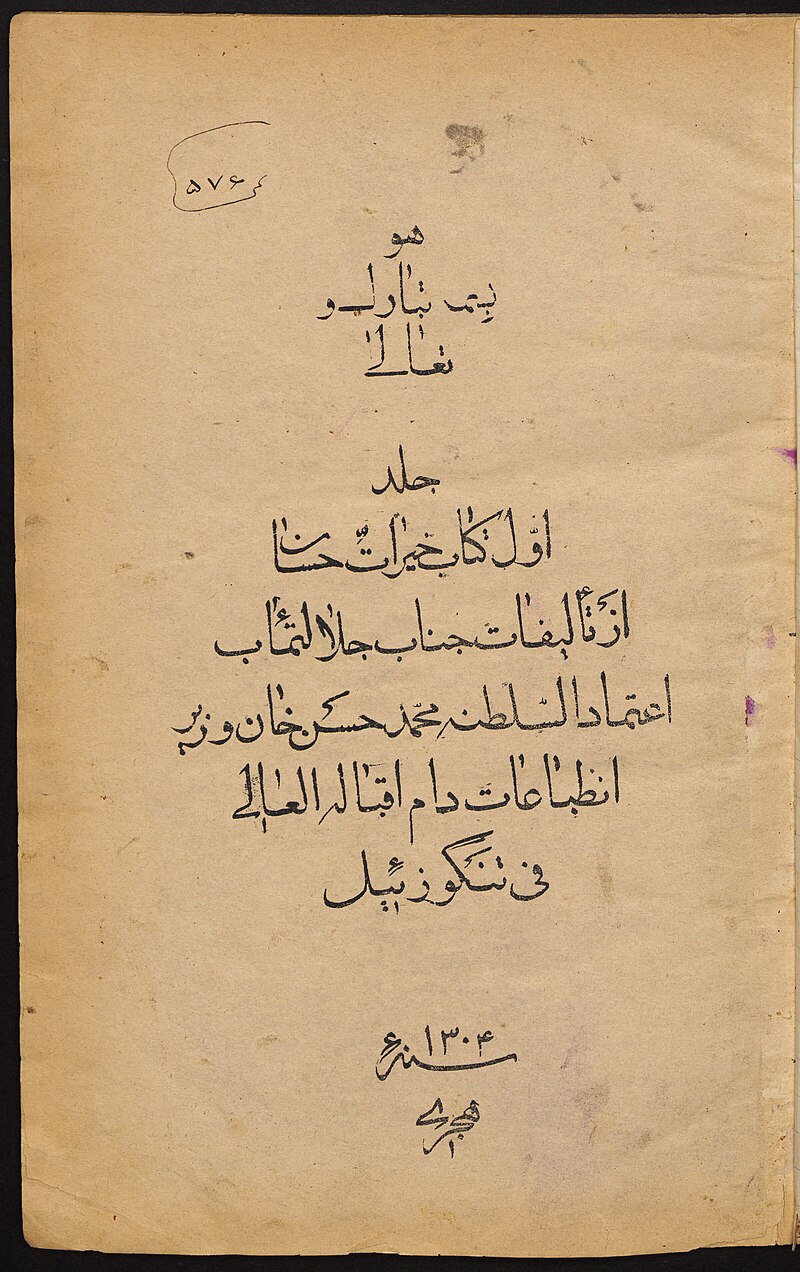 نمر ۵۷۶
هو
بسمه تبارک و
تعالی
جلد
اوّل کتاب خیراتٌ حسان
از تألیفات جناب جلالتمآب
اعتماد السّلطنه محمّد حسن خان وزیر
انطباعات دام اقباله العالی
فی تنگوز ئیل
سنهٔ ۱۳۰۴
هجری